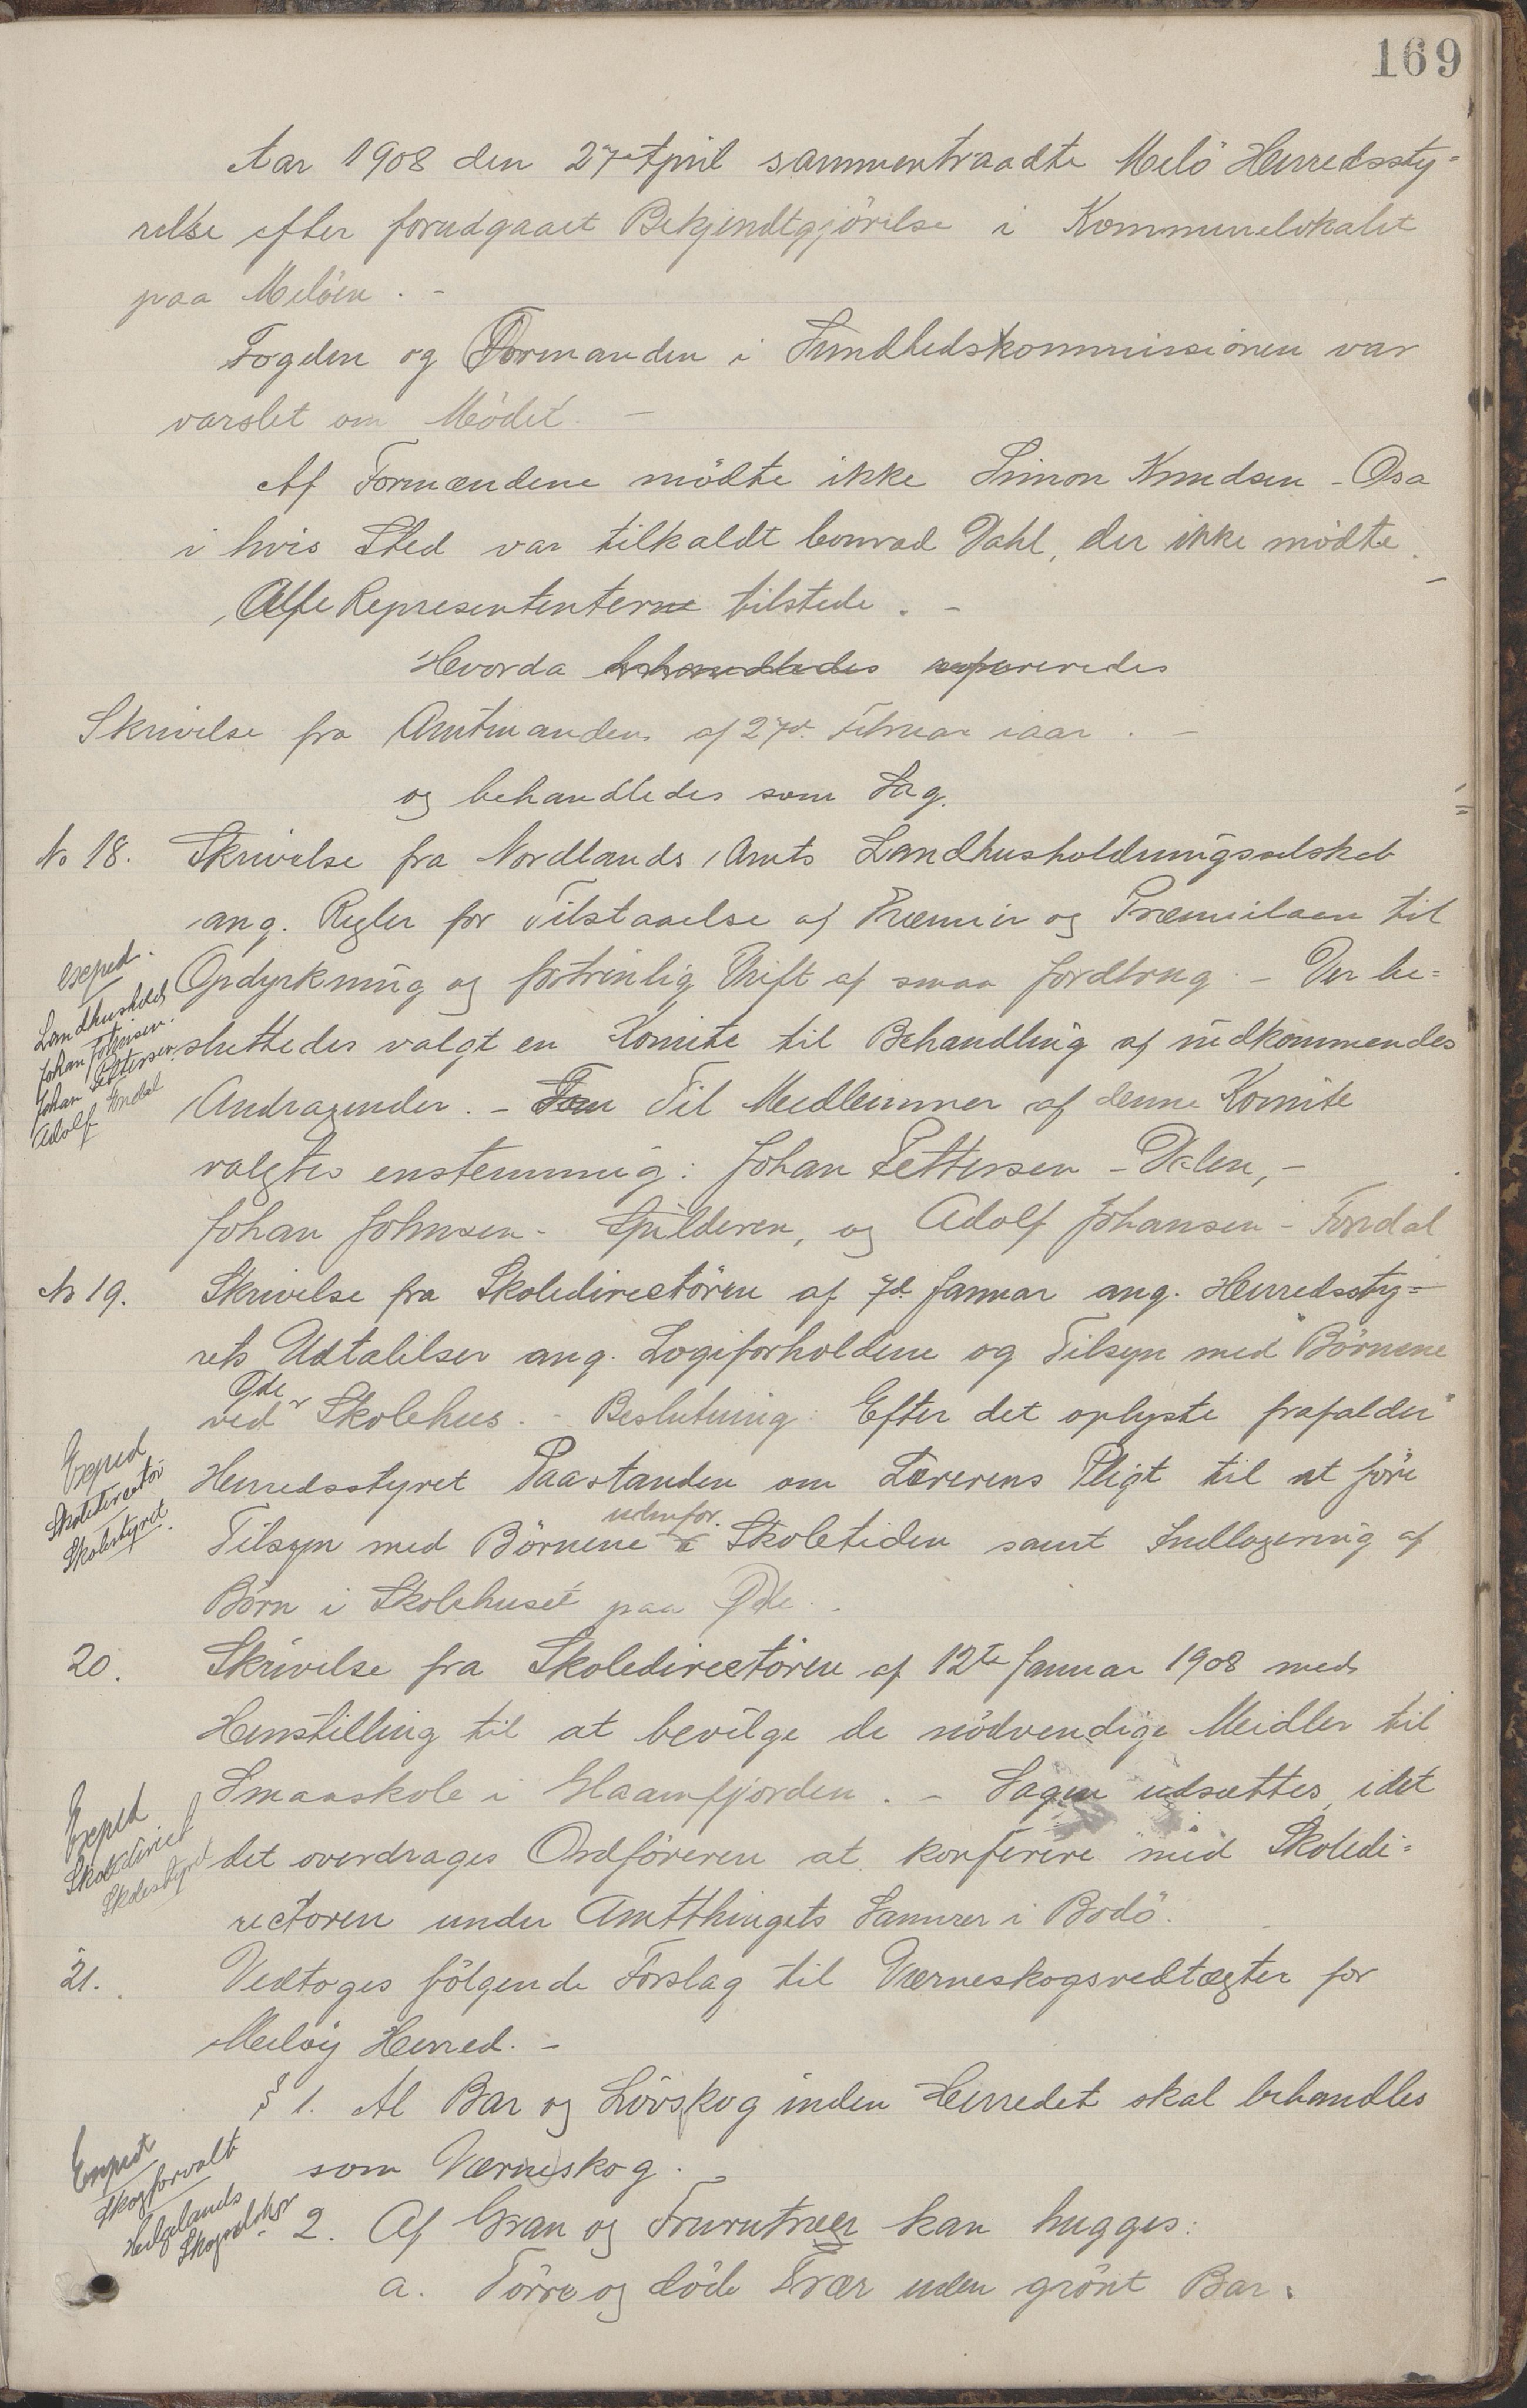 169
Aar 1908 den 27de April sammentraadte Melö Herredssty=
relse efter forudgaaet Bekjendtgjörelse i Kommunelokalet
paa Melöen. -
Fogden og Formanden i Sundhedskommissionen var
varslet om Mödet. -
Af Formændene mödte ikke Simon Knudsen - Osa
i hvis Sted var tilkaldt Conrad Dahl, der ikke mödte. -
Alle Represententerne tilstede. -
Hvorda behandledes refereredes
Skrivelse fra Amtmanden af 27de Februar iaar. -
og behandledes som Sag.
No 18. Skrivelse fra Nordlands Amts Landhusholdningsselskab
ang. Regler for Tilstaaelse af Præmier og Præmielaan til
Opdyrkning og fortrinlig Drift af smaa Jordbrug. - Der be=
sluttedes valgt en Komite til Behandling af indkommendes
Andragender. - Som Til Medlemmer af denne Komite
valgtes enstemmig: Johan Pettersen - Dalen, -
Johan Johnsen - Spilderen, og Adolf Johansen - Fondal
exped.
Landhusholds
Johan Johnsen.
Johan Pettersen
Adolf Fondal
No 19. Skrivelse fra Skoledirectören af 7de Januar ang. Herredssty=
rets Udtalelser ang. Logiforholdene og Tilsyn med Börnene
ved Øde Skolehus. - Beslutning: Efter det oplyste frafalder
Herredsstyret Paastanden om Lærerens Pligt til at före
Tilsyn med Börnene udenfor Skoletiden samt Indlogering af
Börn i Skolehuset paa Øde. -
Exped
Skoledirectör
Skolestyret.
20. Skrivelse fra Skoledirectören af 12te Januar 1908 med
Henstilling til at bevilge de nödvendige Meidler til
Smaaskole i Glaamfjorden. - Sagen udsættes, idet
det overdrages Ordföreren at konferere med Skoledi=
rectoren under Amtthingets Samvær i Bodö.
Exped
Skoledirect
Skolestyret
21. Vedtoges fölgende Forslag til Værneskogsvedtægter for
Meløy Herred. -
§ 1. Al Bar og Lövskog inden Herredet skal behandles
som Værneskog.
- 2. Af Gran og Furutrær kan hugges:
a. Törre og döde Trær uden grönt Bar.
Exped
Skogforvalt
Helgelands
Skogselskap